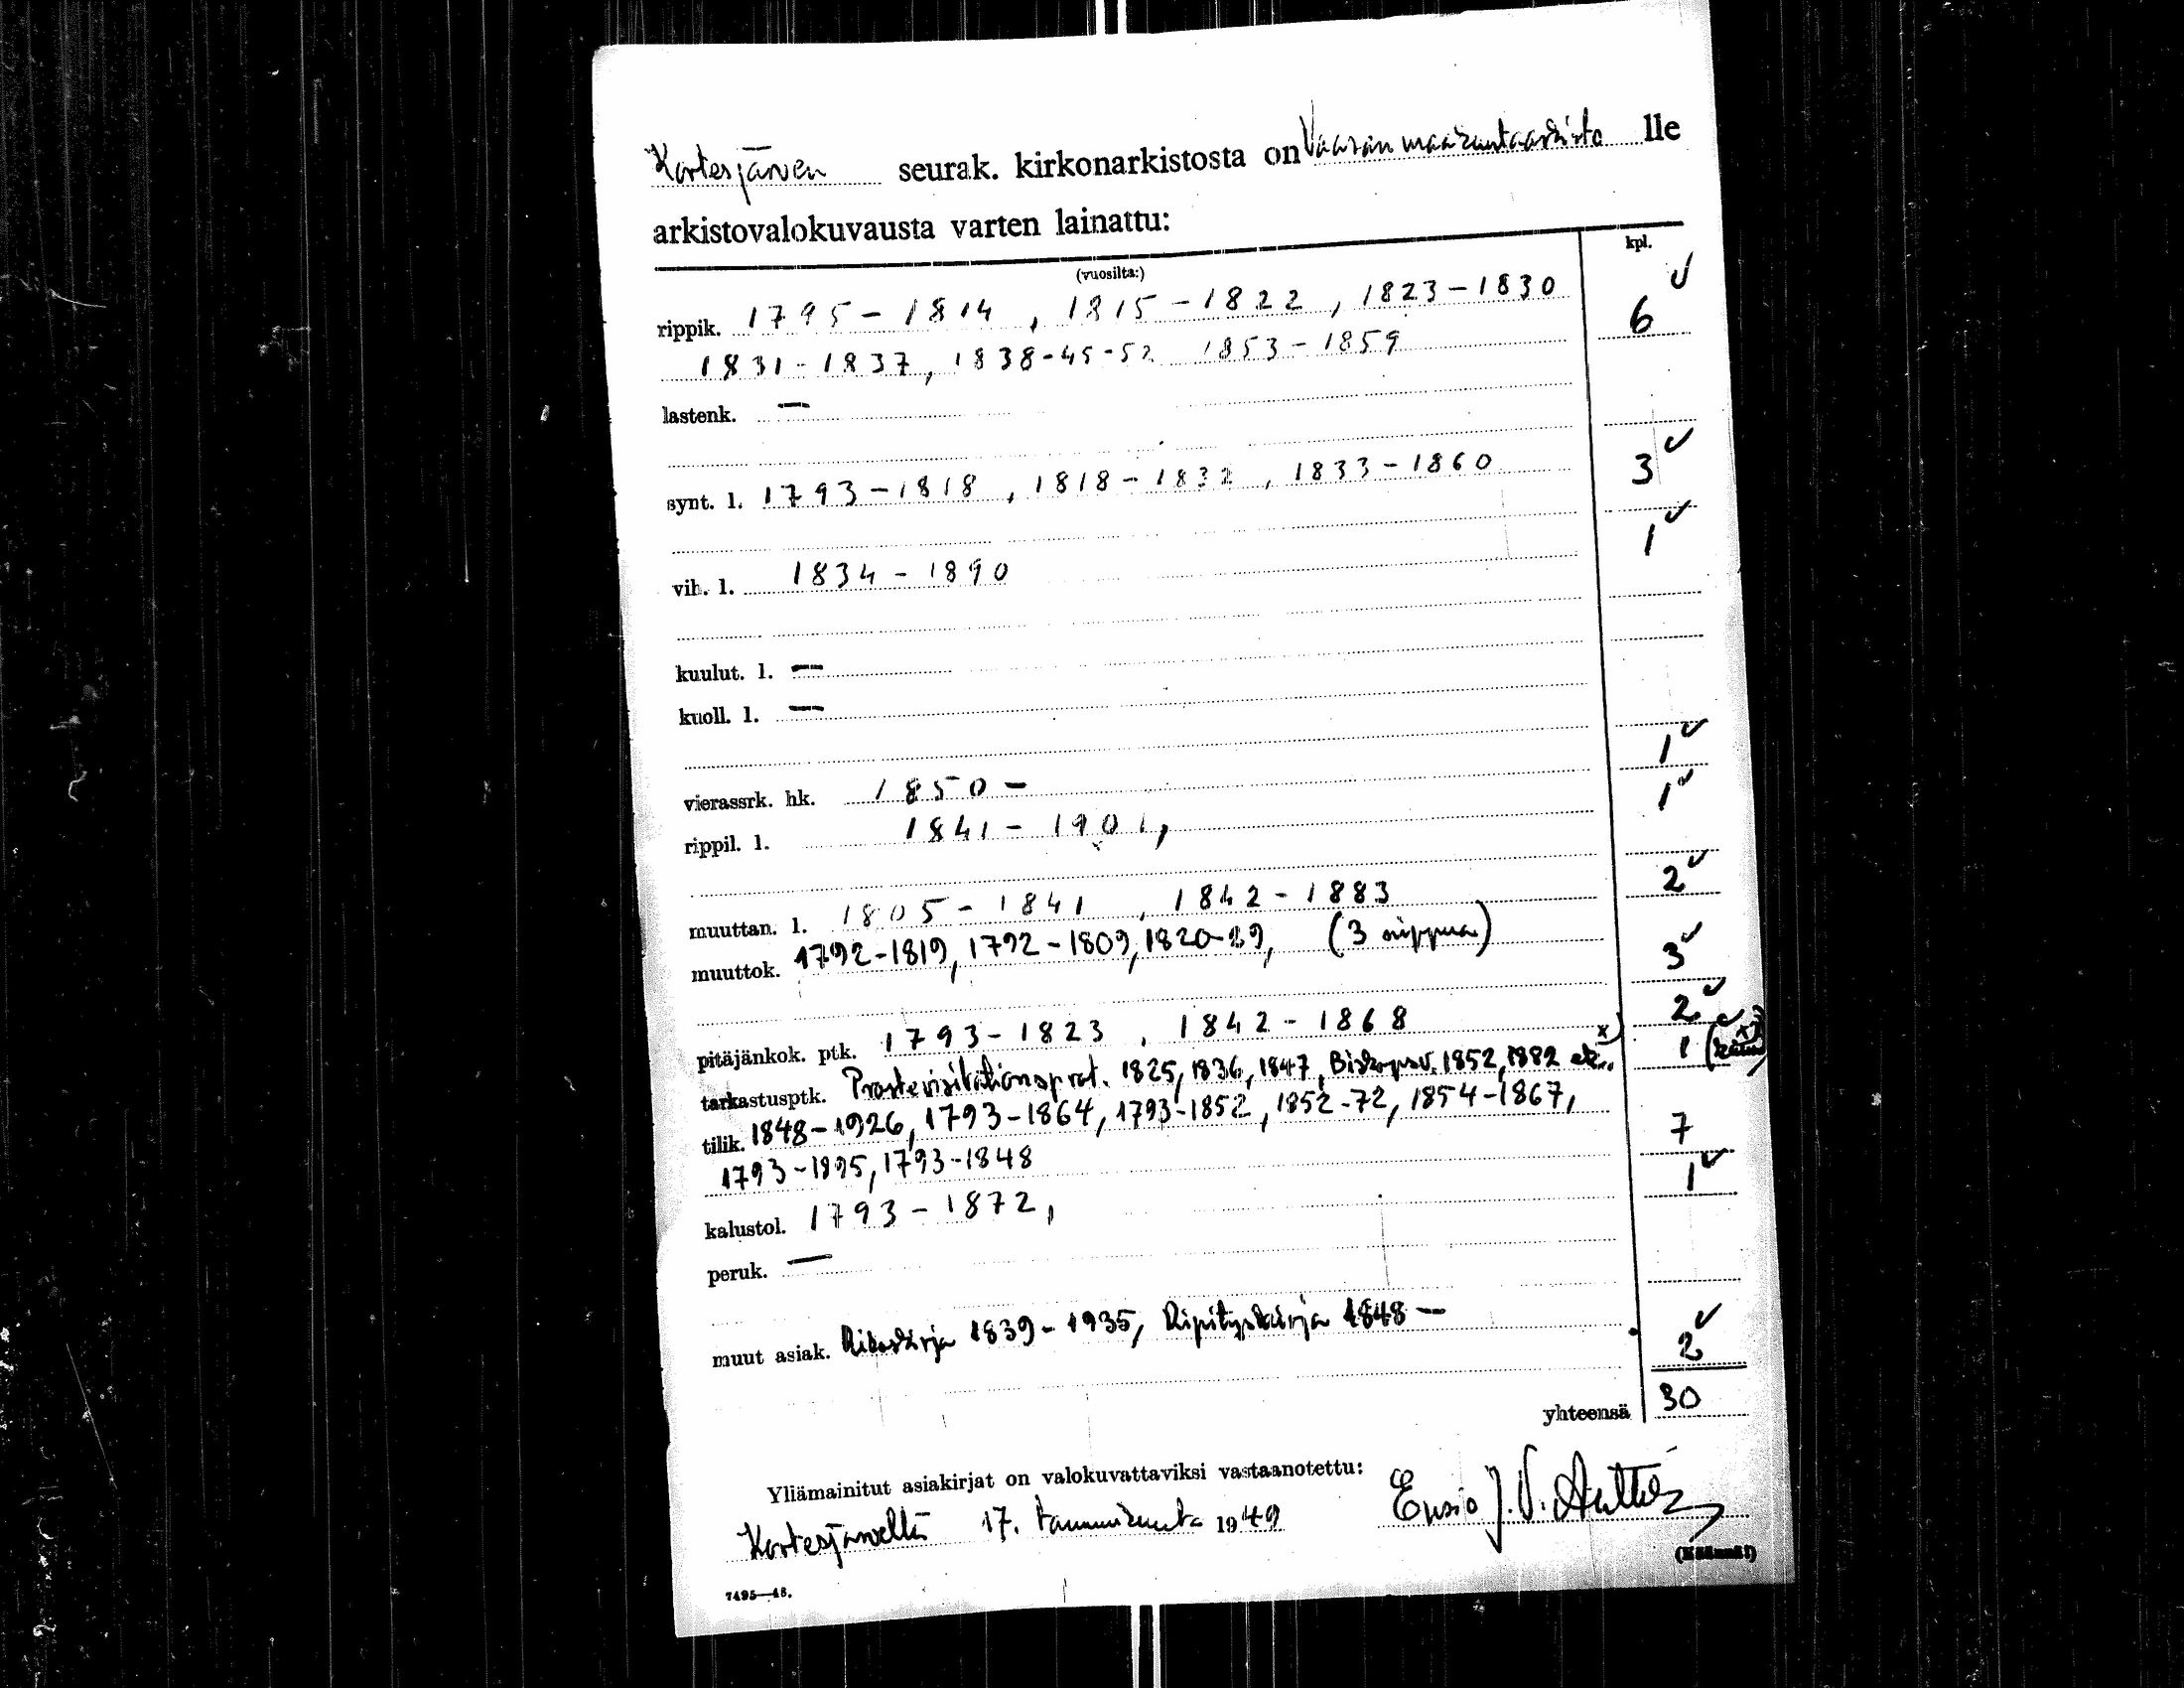 Kortesjärven seurak. kirkonarkistosta on Vaasan maakuntaarkisto lle
arkistovalokuvausta varten lainattu:
(vuosilta:) kpl.
rippik. 1795 – 1814 , 1815 – 1822 , 1823 – 1830 6
1831 – 1837, 1838-45-52 1853 – 1859
lastenk. —
synt. l. 1793 – 1818 , 1818 – 1832 , 1833 – 1860 3
vih. l. 1834 – 1890 1
kuulut. l. —
kuoll. l. —
vierassrk. hk. 1850 – 1
rippil. l. 1841 – 1901, 1
muuttan. l. 1805 – 1841 , 1842 – 1883 2
muuttok. 1792-1819, 1792-1809, 1820-29, (3 nippua) 3
pitäjänkok. ptk. 1793 – 1823 , 1842 – 1868 2
tarkastusptk. Prostevisitationsprot. 1825, 1836, 1847, Biskopsv. 1852, 1882 etc. x) 1
tilik. 1848-1926, 1793-1864, 1793-1852, 1852-72, 1854-1867, 7
1793-1895, 1793-1848
kalustol. 1793 – 1872, 1
peruk. —
muut asiak. Rikoskirja 1839 – 1935, Ripityskirja 1848 — 2
yhteensä 30
Yliämainitut asiakirjat on valokuvattaviksi vastaanotettu:
Kortesjärvellä 17. tammikuuta 1949 Ensio J. V.
(Käännä!)
7495—48.